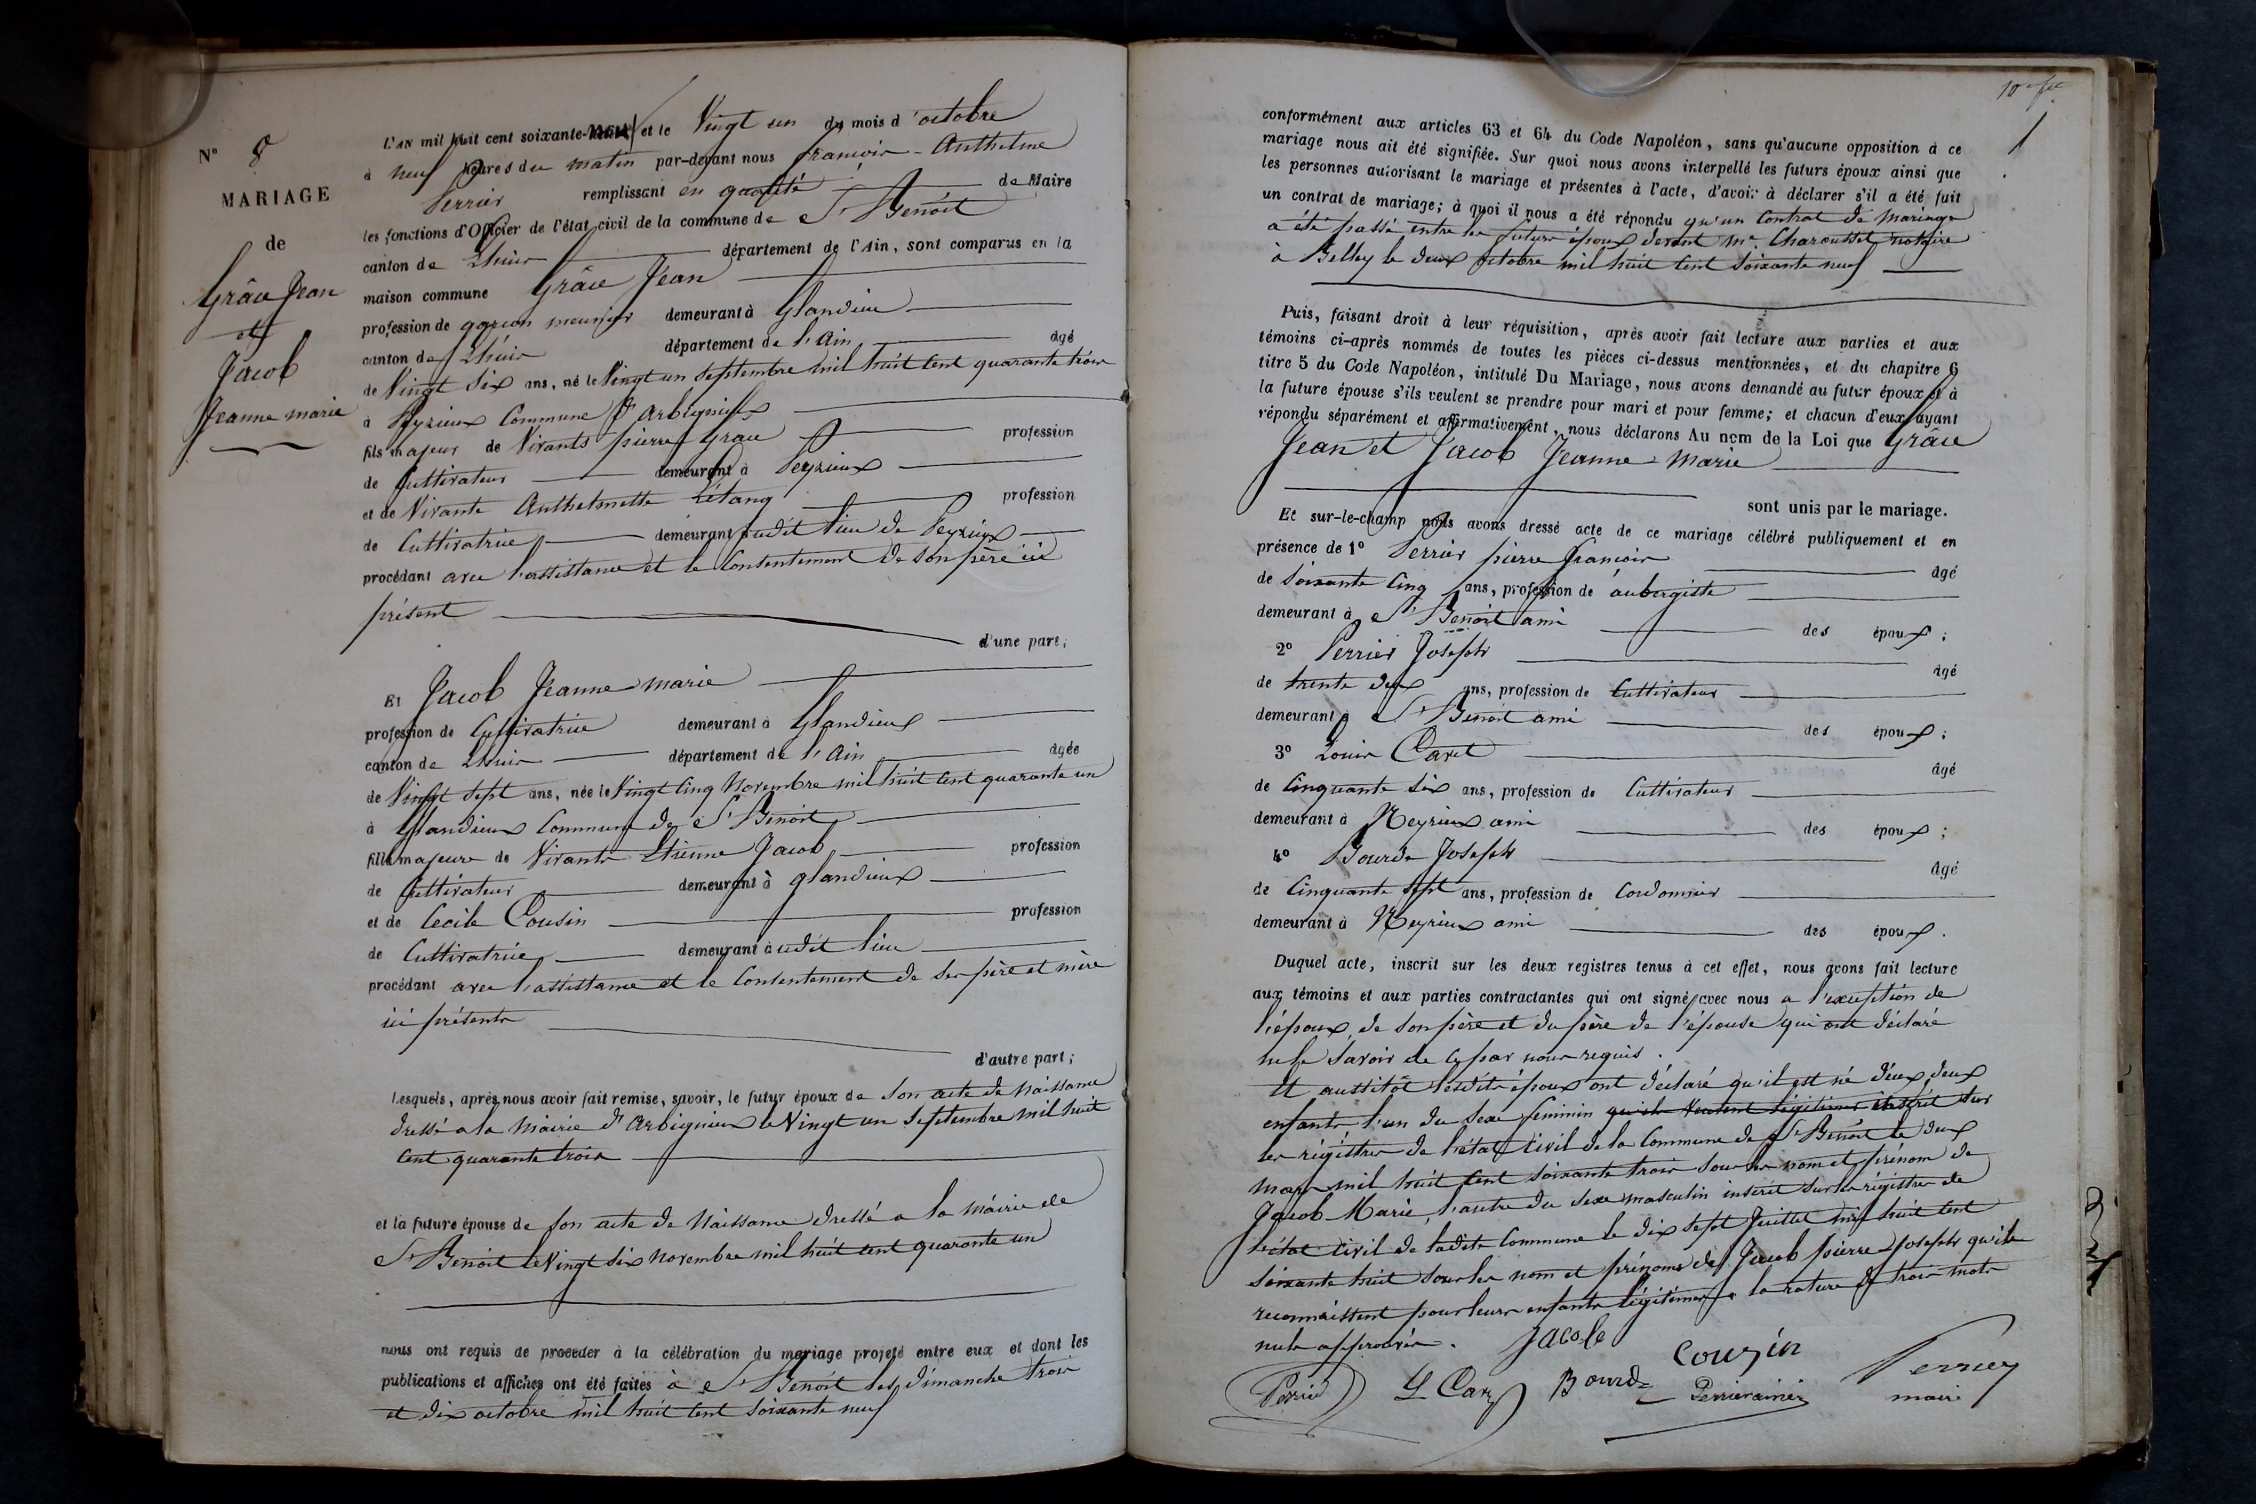 N° 8
MARIAGE
de
Grâce Jean
et
Jacob
Jeanne marie
L'AN mil huit cent soixante-neuf et le Vingt un du mois d'octobre
à neuf heures du matin par-devant nous françois Anthelme
Perrier remplissant en qualité de Maire
les fonctions d'Officier de l'état civil de la commune de St Benoit
canton de Lhuis département de l'Ain, sont comparus en la
maison commune Grâce Jean
profession de garçon meunier demeurant à Glandieu
canton de Lhuis département de l'Ain âgé
de Vingt six ans, né le Vingt un septembre mil huit cent quarante trois
à Peyrieux Commune d'Arbignieux
fils majeur de Vivants pierre Grâce profession
de Cultivateur demeurant à Peyrieux
et de Vivante Anthelmette Létang profession
de Cultivatrice demeurant audit lieu de Peyrieux
procédant avec l'assistance et le Consentement de son père ici
présent
d'une part;
Et Jacob Jeanne marie
profession de Cultivatrice demeurant à Glandieux
canton de Lhuis département de l'Ain âgée
de Vingt sept ans, née le Vingt Cinq Novembre mil huit cent quarante un
à Glandieux Commune de St Benoit
fille majeure de Vivants Etienne Jacob profession
de Cultivateur demeurant à glandieux
et de Cecile Cousin profession
de Cultivatrice demeurant à udit lieu
procédant avec l'assistance et le Consentement de ses père et mère
ici présents
d'autre part;
Lesquels, après nous avoir fait remise, savoir, le futur époux de son acte de Naissance
dressé a la Mairie d'Arbignieux le Vingt un Septembre mil huit
cent quarante trois
et la future épouse de son acte de Naissance dressé a la Mairie de
St Benoit le Vingt six novembre mil huit cent quarante un
nous ont requis de procéder à la célébration du mariage projeté entre eux et dont les
publications et affiches ont été faites à St Benoit les dimanche trois
et dix octobre mil huit cent soixante neuf
1
conformément aux articles 63 et 64 du Code Napoléon, sans qu'aucune opposition à ce
mariage nous ait été signifiée. Sur quoi nous avons interpellé les futurs époux ainsi que
les personnes autorisant le mariage et présentes à l'acte, d'avoir à déclarer s'il a été fait
un contrat de mariage; à quoi il nous a été répondu qu'un Contrat de Mariage
a été passé entre les futurs époux devant Me Charousset notaire
à Belley le deux octobre mil huit cent soixante neuf
Puis, faisant droit à leur réquisition, après avoir fait lecture aux parties et aux
témoins ci-après nommés de toutes les pièces ci-dessus mentionnées, et du chapitre 6
titre 5 du Code Napoléon, intitulé Du Mariage, nous avons demandé au futur époux et à
la future épouse s'ils veulent se prendre pour mari et pour femme; et chacun d'eux ayant
répondu séparément et affirmativement, nous déclarons Au nom de la Loi que Grâce
Jean et Jacob Jeanne Marie
sont unis par le mariage.
Et sur-le-champ nous avons dressé acte de ce mariage célébré publiquement et en
présence de 1° Perrier pierre françois âgé
de soixante Cinq ans, profession de aubergiste
demeurant à St Benoit ami des époux;
2° Perrier Joseph âgé
de trente deux ans, profession de Cultivateur
demeurant à St Benoit ami des époux;
3° Louis Caret âgé
de Cinquante Six ans, profession de Cultivateur
demeurant à Meyrieux ami des époux;
4° Bourde Joseph âgé
de Cinquante sept ans, profession de Cordonnier
demeurant à Meyrieux ami des époux.
Duquel acte, inscrit sur les deux registres tenus à cet effet, nous avons fait lecture
aux témoins et aux parties contractantes qui ont signé avec nous a l'exception de
l'époux, de son père et du père de l'épouse qui ont déclaré
ne le Savoir de Ce par nous requis.
Et aussitôt lesdits époux ont déclaré qu'il est né d'eux deux
enfants l'un du sexe feminin qu'ils veulent légitimer inscrit sur
les régistres de l'état Civil de la Commune de St Benoit le deux
mars mil huit cent soixante trois sous les nom et prénom de
Jacob Marie, l'autre du sexe masculin inscrit sur les régistres de
l'état Civil de ladite Commune le dix sept Juillet mil huit cent
soixante huit sous les nom et prénoms de Jacob pierre Joseph qu'ils
reconnaissent pour leurs enfants légitimes. la rature de trois mots
nuls approuvée. Jacob
Couzin
Perrier
L Caret Bourde Perrier ainé Perrier
maire